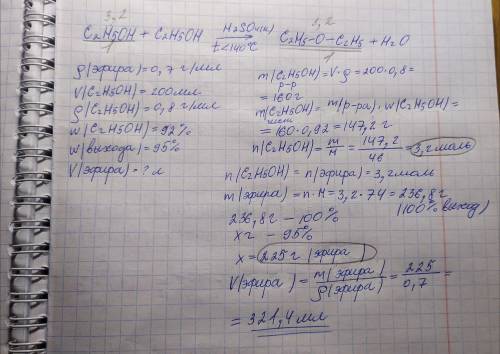 3,2
3,2
C₂H₅OH + C₂H₅OH → C₂H₅-O-C₂H₅ + H₂O
H₂SO₄(к)
t<140°C
1
1
ρ(эфира)=0,7 г/мл
V(C₂H₅OH)=200мл
ρ(C₂H₅OH)=0,8 г/мл
w(C₂H₅OH)=92%
w(выхода)=95%
V(эфира)-? л
m(C₂H₅OH)=V·ρ=200·0,8=
р-р
=160г
m(C₂H₅OH)=m(р-ра)·w(C₂H₅OH)=
чист
=160·0,92=147,2 г
n(C₂H₅OH)=m/M=147,2/46=3,2моль
n(C₂H₅OH)=n(эфира)=3,2моль
m(эфира)=n·M=3,2·74=236,8г
236,8г - 100% (100% выход)
xг - 95%
x=225г (эфира)
V(эфира)=m(эфира)/ρ(эфира)=225/0,7=
=321,4мл